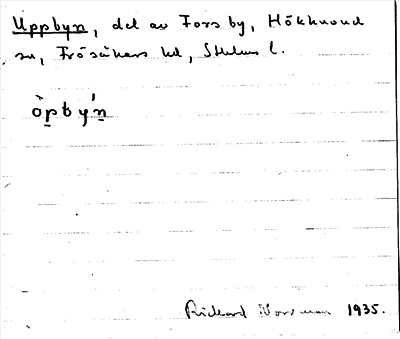 Uppbyn, del av Fors by, Hökhuvud
sn, Frösåkers hd, Sthlms l.
òpby´n
Rickard Norrman 1935.